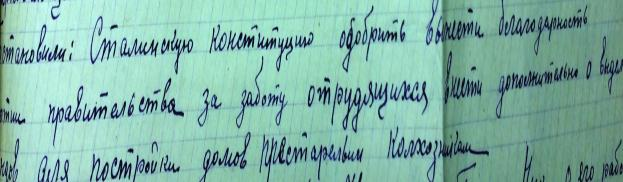 становили: Сталинскую конституцию одобрить вынести благодарность
правительства за заботу отрудящихся внести дополнительно о выдел
для постройки домов престарелым колхозникам